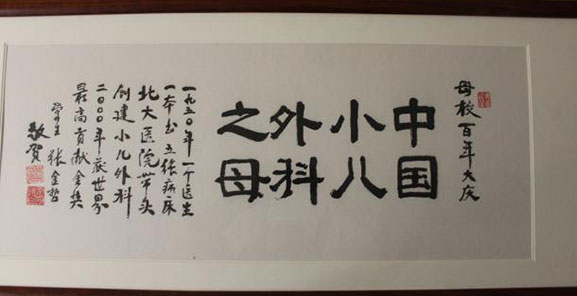 母校百年大庆
中国
小儿
外科
之母
一九五〇年一个医生
一本书五张病床
北大医院带头
创建小儿外科
二〇〇〇年获世界
最高贡献金奖
学生 张金哲
敬贺